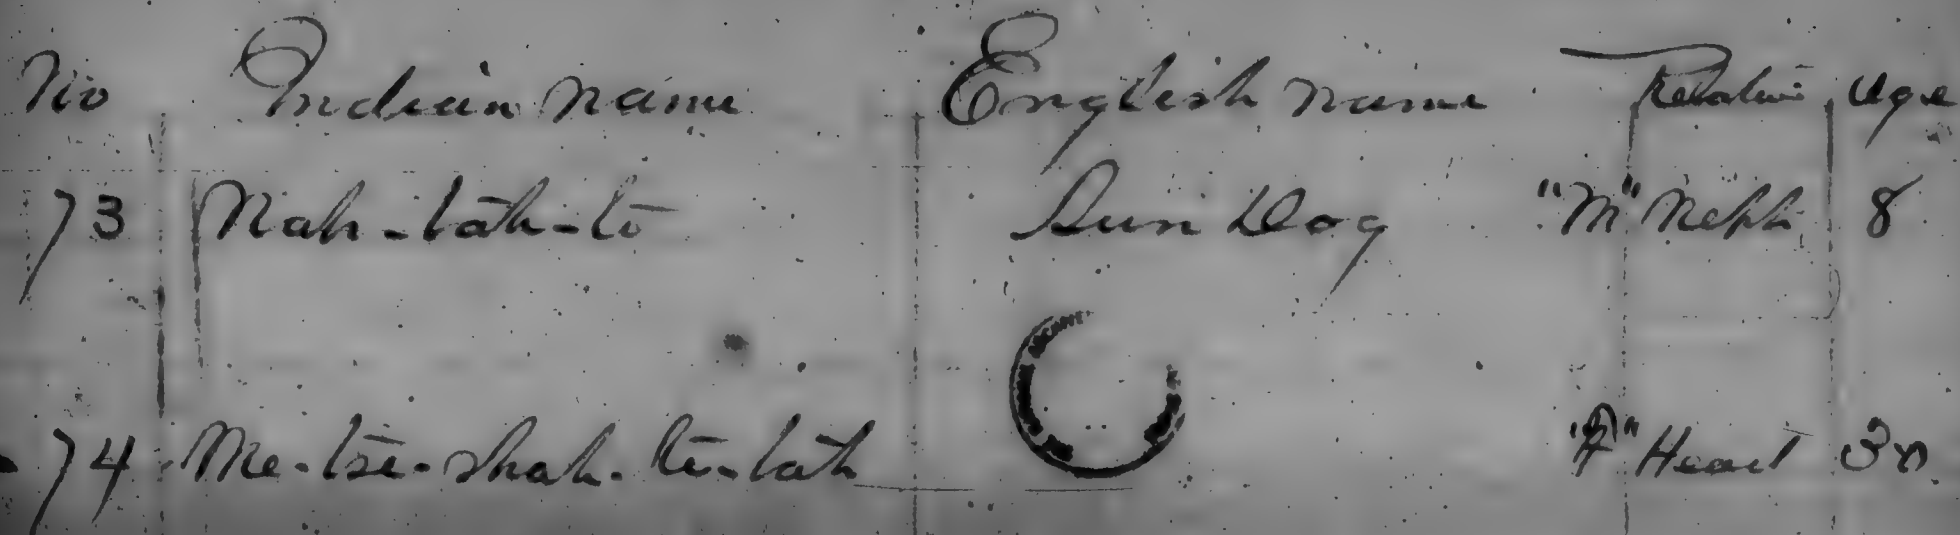 No Indian name English name Relative Age
73 Nah-tah-to Sun Dog "M" Neph 8
74 Me-tse-shah-te-tah "F" Head 30